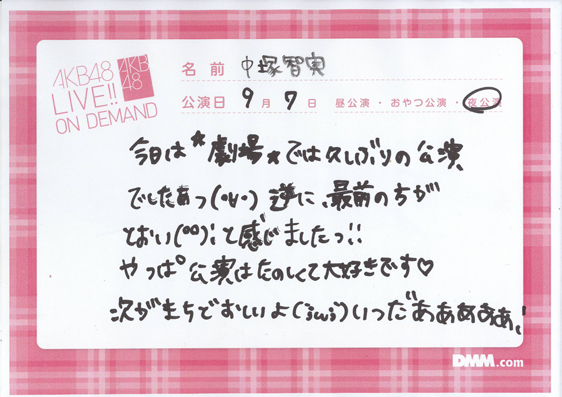 AKB48
LIVE!!
ON DEMAND
AKB
48
名前 中塚智実
公演日 9月7日 昼公演・おやつ公演・夜公演
今日は★劇場★では久しぶりの公演
でしたあっ(・∀・) 逆に、最前のちが
とおい(°°)!と感じましたっ!!
やっぱ公演はたのしくて大好きです♡
次がまちどおしいよ(;ω;)いつだぁぁぁぁぁ!
DMM.com